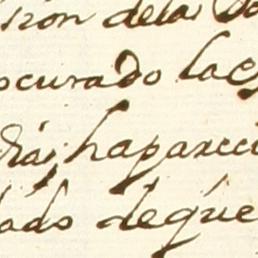 sion delas
ocurado las
dias, haparecci
lado deque